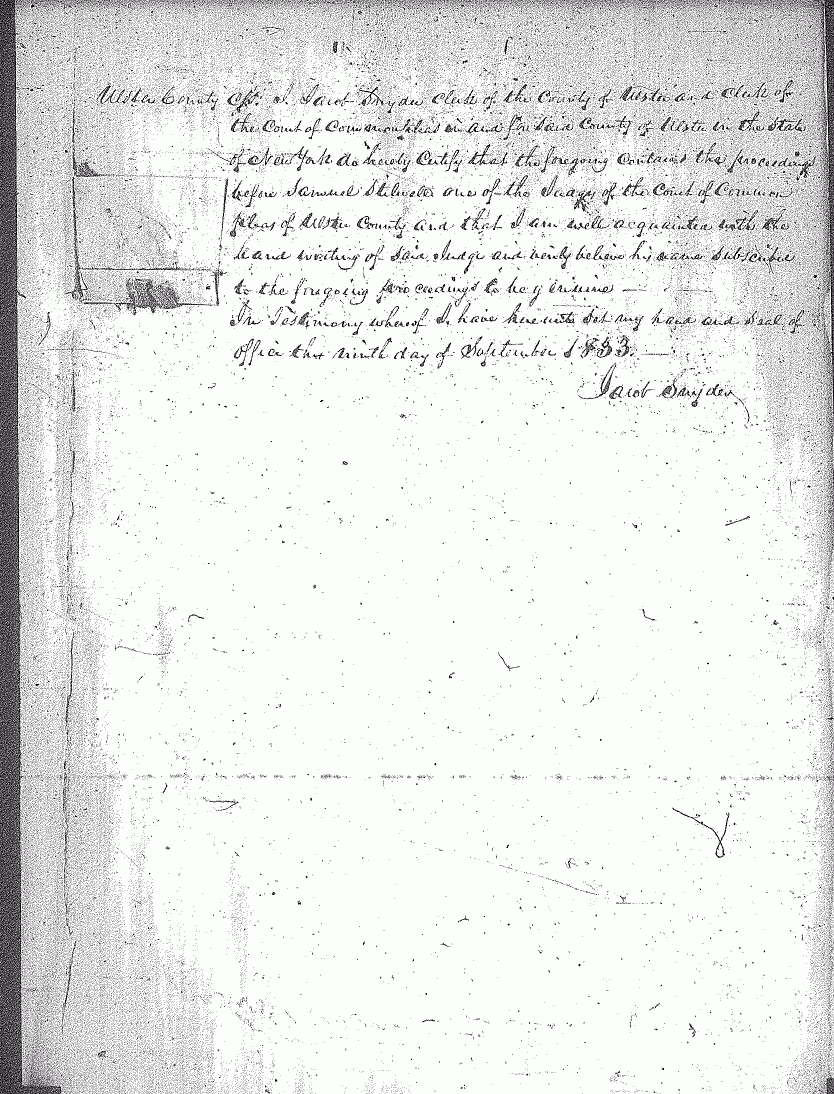 Ulster County Ss. I Jacob Snyder Clerk of the County of Ulster and Clerk of
the Court of Common pleas in and for Said County of Ulster in the State
of New York do hereby Certify that the foregoing contains the proceedings
before Samuel Stilwell one of the Judges of the Court of Common
pleas of Ulster County and that I am well acquainted with the
hand writing of said Judge and verily believe his name subscribed
to the foregoing proceedings to be genuine —
In Testimony whereof I have hereunto set my hand and seal of
office this ninth day of September 1833. —
Jacob Snyder